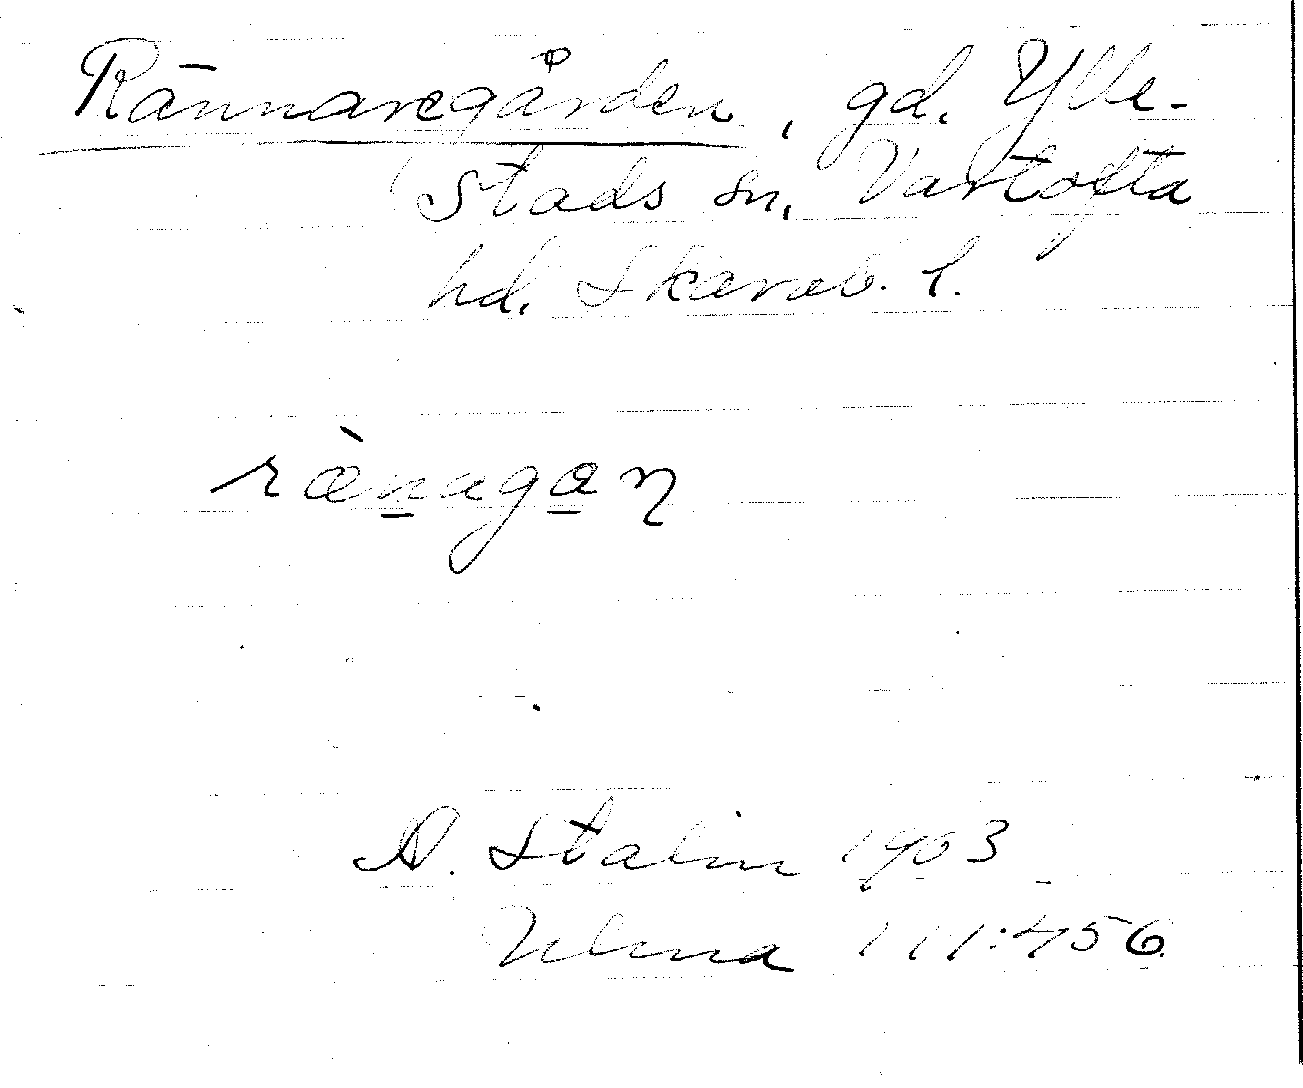 Rännaregården, gd. Ylle-
stads sn, Vartofta
hd. Skarab. l.
ræ̀nagan
D. Stalin 1903
Ulma 111:456